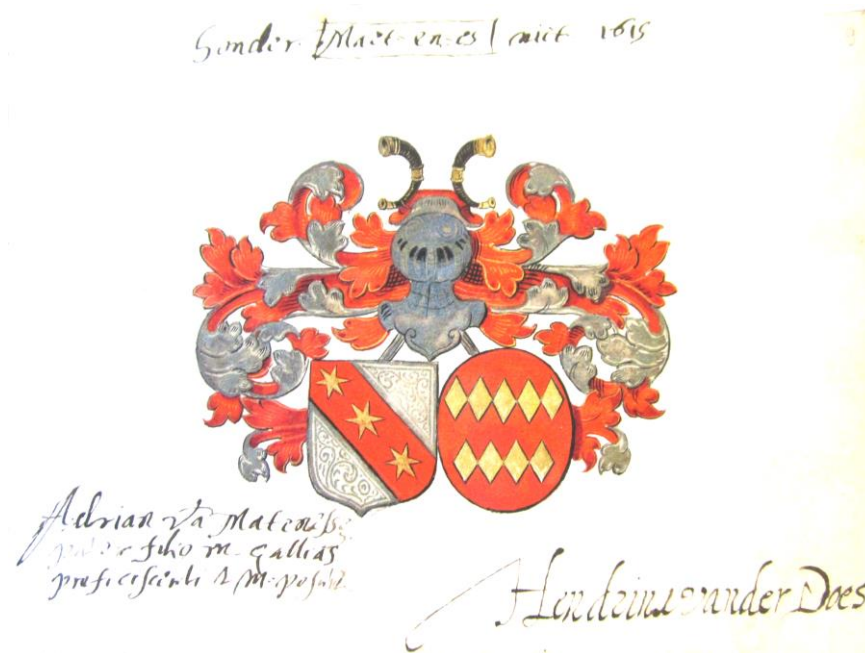 Sonder Maet en es niit 1615
Adrian vā Matenesse
pater filio in gallias
proficiscenti
Hendrina vander Does